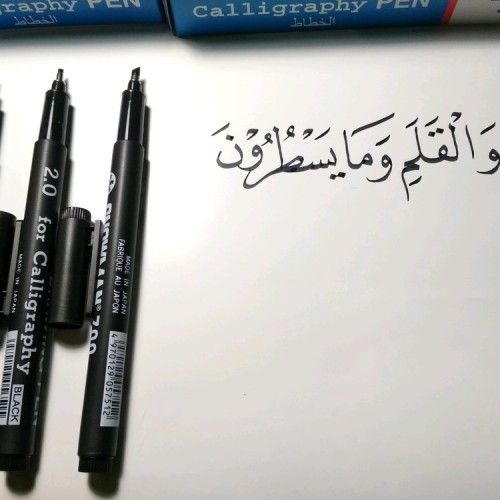 Calligraphy PEN
الخطاط
graphy PEN
الخطاط
وَالْقَلَمِ وَمَا يَسْطُرُوْنَ
2.0 for Calligraphy
MADE IN JAPAN
BLACK
MADE IN JAPAN
FABRIQUE AU JAPON
4 970129 057512